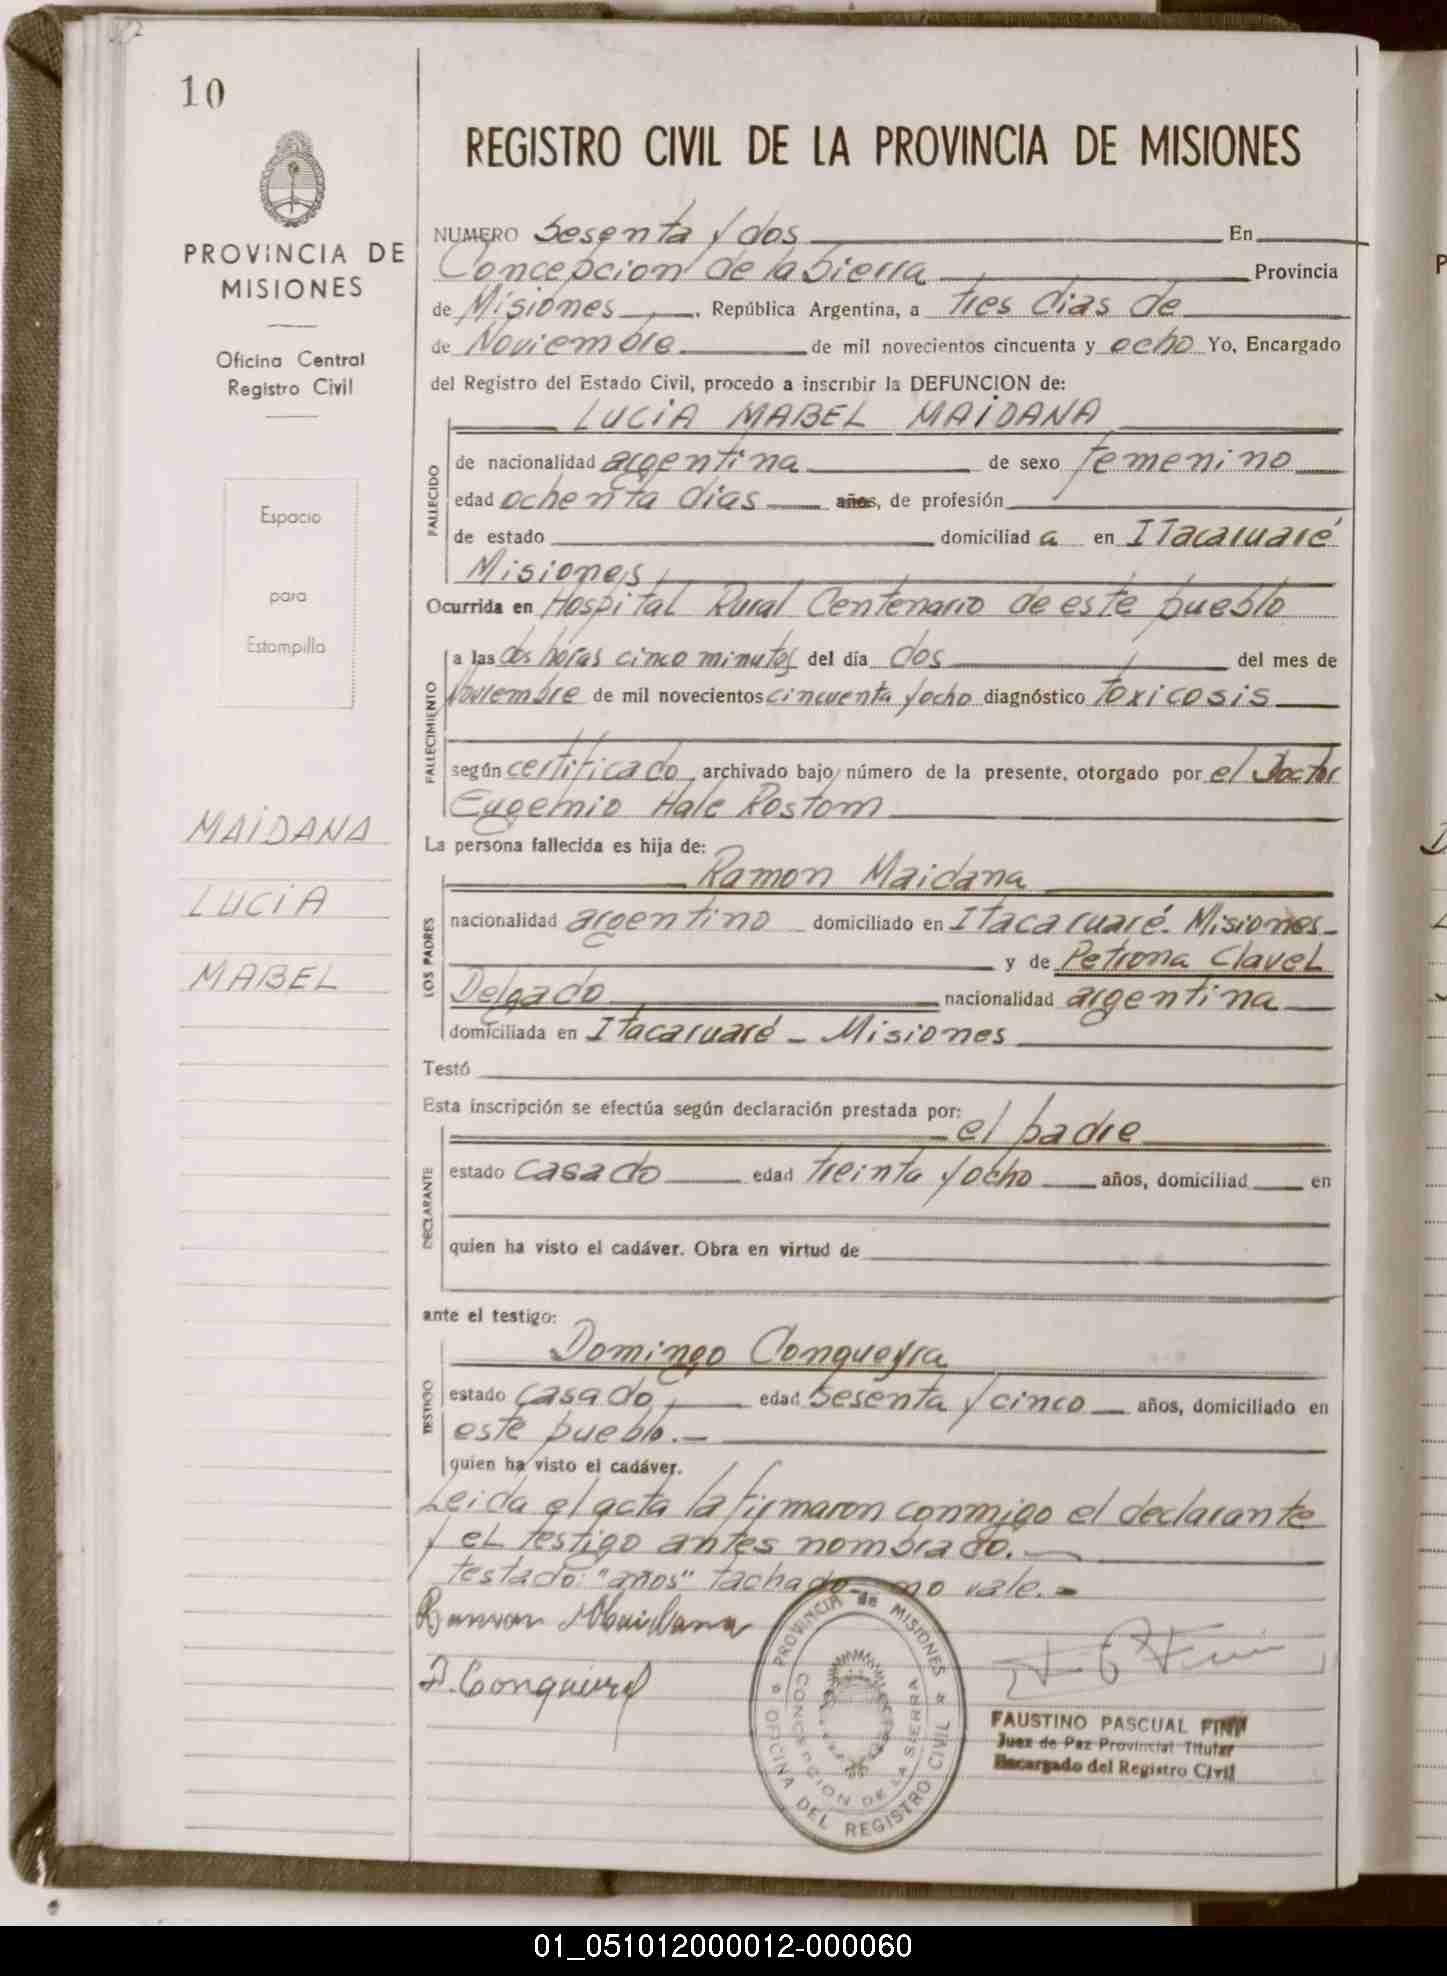 10
PROVINCIA DE
MISIONES
Oficina Central
Registro Civil
Espacio
para
Estampilla
MAIDANA
LUCIA
MABEL
REGISTRO CIVIL DE LA PROVINCIA DE MISIONES
NUMERO Sesenta y dos En
Concepcion de la Sierra Provincia
de Misiones, República Argentina, a tres dias de
de Noviembre de mil novecientos cincuenta y ocho Yo, Encargado
del Registro del Estado Civil, procedo a inscribir la DEFUNCION de:
LUCIA MABEL MAIDANA
FALLECIDO
de nacionalidad argentina de sexo femenino
edad ochenta dias años, de profesión
de estado domiciliad a en Itacaruaré
Misiones
Ocurrida en Hospital Rural Centenario de este pueblo
FALLECIMIENTO
a las dos horas cinco minutos del día dos del mes de
Noviembre de mil novecientos cincuenta y ocho diagnóstico toxicosis
según certificado archivado bajo número de la presente, otorgado por el Doctor
Eugenio Hale Rostom
La persona fallecida es hija de:
LOS PADRES
Ramon Maidana
nacionalidad argentino domiciliado en Itacaruaré. Misiones-
y de Petrona Clavel
Delgado nacionalidad argentina
domiciliada en Itacaruaré - Misiones
Testó
Esta inscripción se efectúa según declaración prestada por:
DECLARANTE
el padre
estado casado edad treinta y ocho años, domiciliad en
quien ha visto el cadáver. Obra en virtud de
ante el testigo:
TESTIGO
Domingo Conqueyra
estado casado edad sesenta y cinco años, domiciliado en
este pueblo.-
quien ha visto el cadáver.
Leida el acta la firmaron conmigo el declarante
y el testigo antes nombrado.
testado: "años" tachado no vale.-
Ramon Maidana
D. Conqueyra
PROVINCIA de MISIONES
OFICINA DEL REGISTRO CIVIL
CONCEPCION DE LA SIERRA
FAUSTINO PASCUAL FINI
Juez de Paz Provincial Titular
Encargado del Registro Civil
01_051012000012-000060